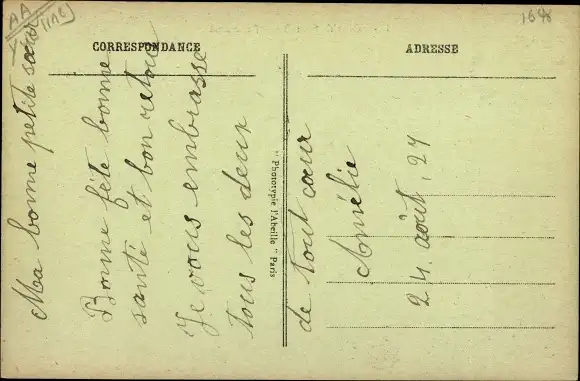 CORRESPONDANCE
ADRESSE
Ma bonne petite sœur
Bonne fête bonne
santé et bon retour
Je vous embrasse
tous les deux
de tout cœur
Amélie
24 août, 27
" Phototypie l'Abeille " Paris
AA